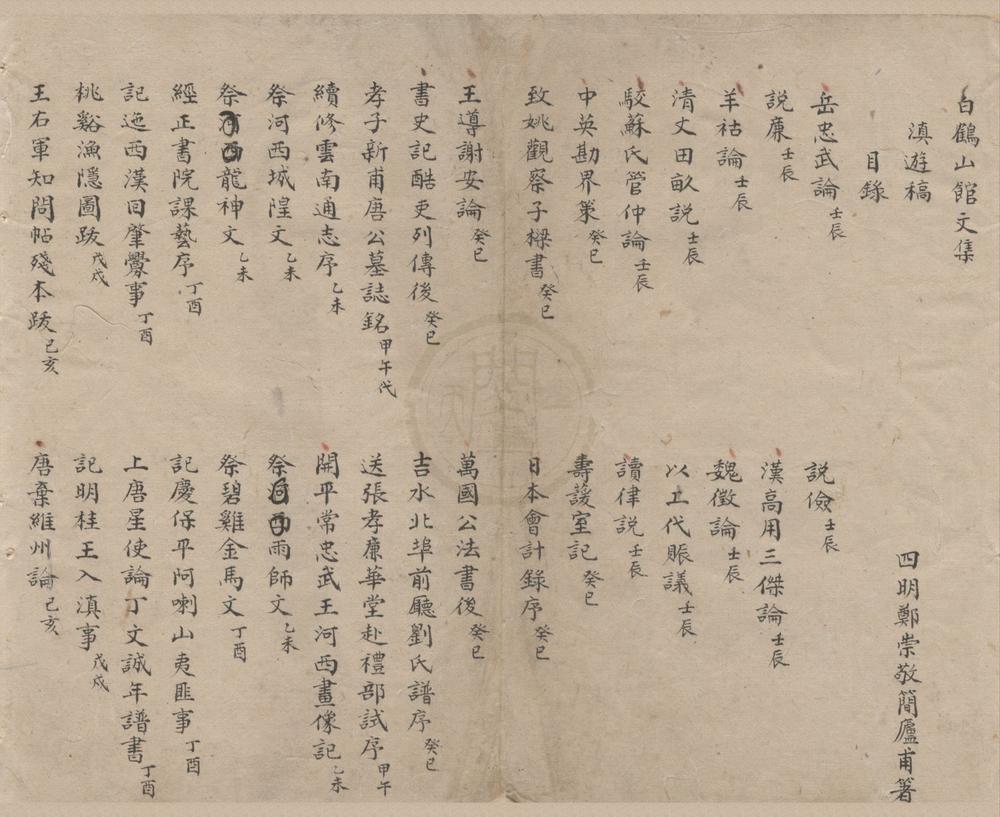 白鶴山館文集
滇遊稿
四明鄭崇敬簡廬甫著
目錄
岳忠武論 壬辰
說儉 壬辰
說廉 壬辰
漢高用三傑論 壬辰
羊祜論 壬辰
魏徵論 壬辰
清丈田畝説 壬辰
以工代賑議 壬辰
駮蘇氏管仲論 壬辰
讀律説 壬辰
中英勘界䇿 癸巳
壽諼室記 癸巳
致姚觀察子樑書 癸巳
日本會計錄序 癸巳
王導謝安論 癸巳
萬國公法書後 癸巳
書史記酷吏列傳後 癸巳
吉水北埠前廳劉氏譜序 癸巳
孝子新甫唐公墓誌銘 甲午代
送張孝廉華堂赴禮部試序 甲午
續修雲南通志序 乙未
開平常忠武王河西畫像記 乙未
祭河西城隍文 乙未
祭雨師文 乙未
祭龍神文 乙未
祭碧雞金馬文 丁酉
經正書院課藝序 丁酉
記慶保平阿喇山夷匪事 丁酉
記迤西漢回肇釁事 丁酉
上唐星使論丁文誠年譜書 丁酉
桃谿漁隱圖跋 戊戍
記明桂王入滇事 戊戍
王右軍知問帖殘本跋 己亥
唐棄維州論 己亥